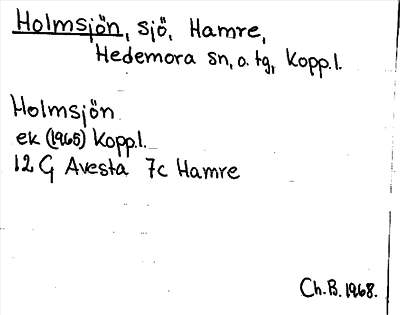 Holmsjön, sjö, Hamre,
Hedemora sn, o. tg, Kopp.l.
Holmsjön
ek (1965) Kopp.l.
12 G Avesta 7c Hamre
Ch.B. 1968.